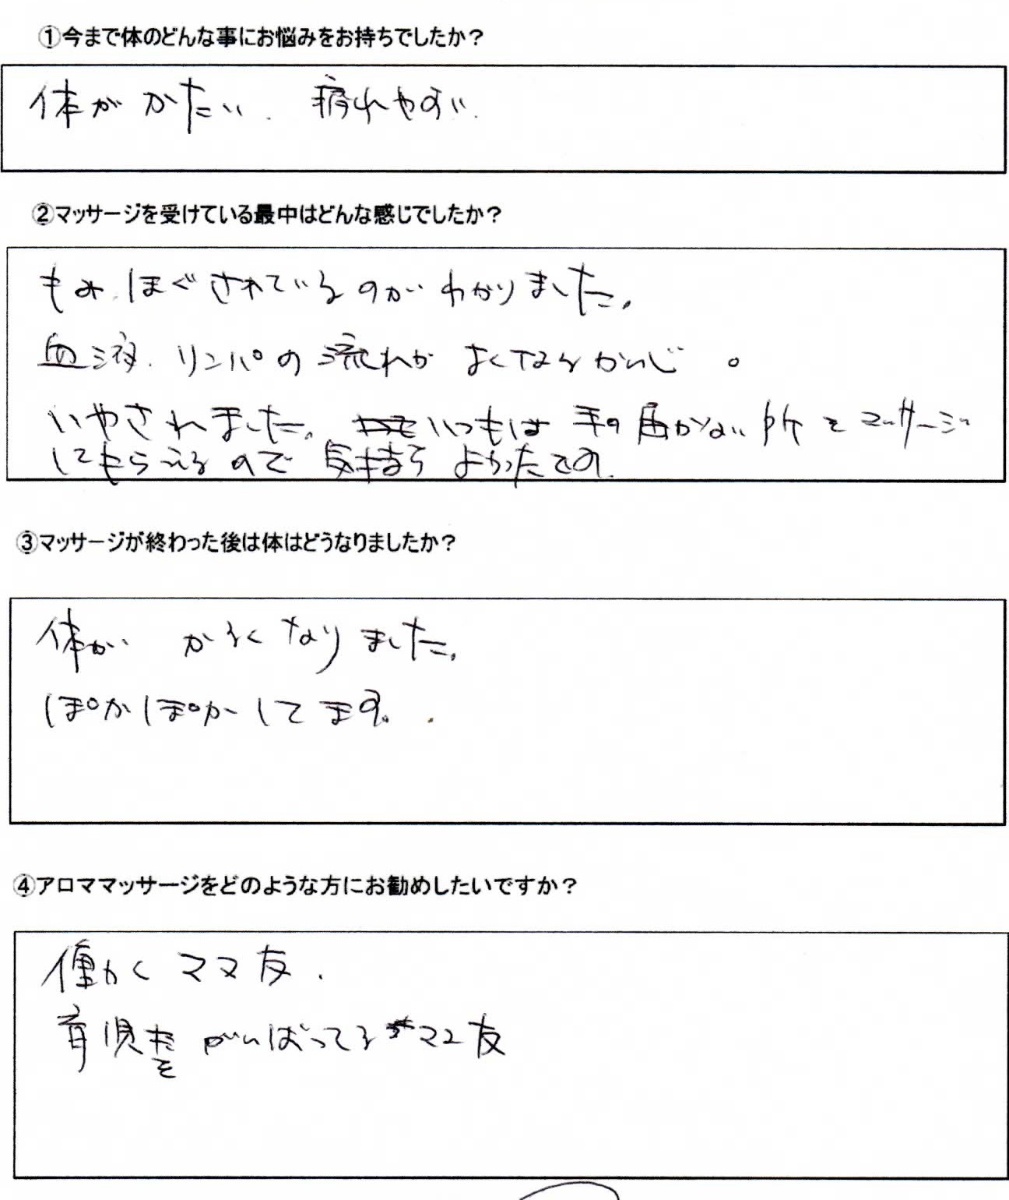 ①今まで体のどんな事にお悩みをお持ちでしたか？
体がかたい、疲れやすい
②マッサージを受けている最中はどんな感じでしたか？
もみほぐされているのがわかりました。
血液、リンパの流れが よくなるかんじ。
いやされました。いつもは手の届かない所をマッサージ
してもらえるので気持ちよかったです。
③マッサージが終わった後は体はどうなりましたか？
体が かるくなりました。
ぽかぽかしてます。
④アロママッサージをどのような方にお勧めしたいですか？
働くママ友.
育児を がんばってるママ友